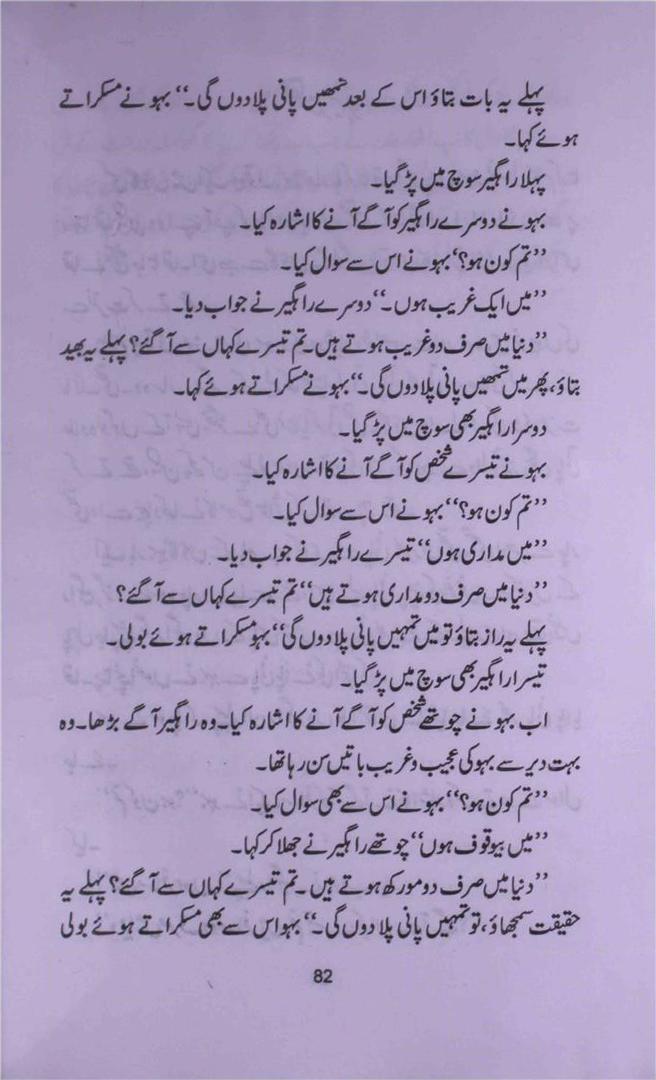 پہلے یہ بات بتاؤ اس کے بعد تمھیں پانی پلادوں گی۔“ بہو نے مسکراتے
ہوئے کہا۔
پہلا راہگیر سوچ میں پڑ گیا۔
بہو نے دوسرے راہگیر کو آگے آنے کا اشارہ کیا۔
”تم کون ہو؟‘ بہو نے اس سے سوال کیا۔
”میں ایک غریب ہوں۔“ دوسرے راہگیر نے جواب دیا۔
”دنیا میں صرف دو غریب ہوتے ہیں۔ تم تیسرے کہاں سے آگئے؟ پہلے یہ بھید
بتاؤ، پھر میں تمھیں پانی پلادوں گی۔“ بہو نے مسکراتے ہوئے کہا۔
دوسرا راہگیر بھی سوچ میں پڑ گیا۔
بہو نے تیسرے شخص کو آگے آنے کا اشارہ کیا۔
”تم کون ہو؟“ بہو نے اس سے سوال کیا۔
”میں مداری ہوں“ تیسرے راہگیر نے جواب دیا۔
”دنیا میں صرف دو مداری ہوتے ہیں“ تم تیسرے کہاں سے آگئے؟
پہلے یہ راز بتاؤ تو میں تمہیں پانی پلا دوں گی“ بہو مسکراتے ہوئے بولی۔
تیسرا راہگیر بھی سوچ میں پڑ گیا۔
اب بہو نے چوتھے شخص کو آگے آنے کا اشارہ کیا۔ وہ راہگیر آگے بڑھا۔ وہ
بہت دیر سے بہو کی عجیب و غریب باتیں سن رہا تھا۔
”تم کون ہو؟“ بہو نے اس سے بھی سوال کیا۔
”میں بیوقوف ہوں“ چوتھے راہگیر نے جھلا کر کہا۔
”دنیا میں صرف دو مورکھ ہوتے ہیں۔ تم تیسرے کہاں سے آگئے؟ پہلے یہ
حقیقت سمجھاؤ، تو تمہیں پانی پلا دوں گی۔“ بہو اس سے بھی مسکراتے ہوئے بولی
82